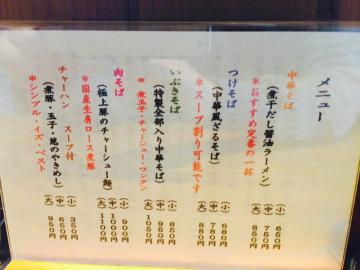 メニュー
中華そば
(煮干だし醤油ラーメン)
＊おすすめ定番の一杯
(小) 650円
(中) 750円
(大) 850円
つけそば
(中華風ざるそば)
＊スープ割り可能です
(小) 680円
(中) 780円
(大) 880円
いぶきそば
(特製全部入り中華そば)
＊煮玉子・チャーシュー・ワンタン
(小) 850円
(中) 950円
(大) 1050円
肉そば
(極上豚のチャーシュー麺)
＊国産生肩ロース煮豚
(小) 900円
(中) 1000円
(大) 1100円
チャーハン スープ付
(煮豚・玉子・葱のやきめし)
＊シンプル・イズ・ベスト
(小) 350円
(中) 650円
(大) 950円